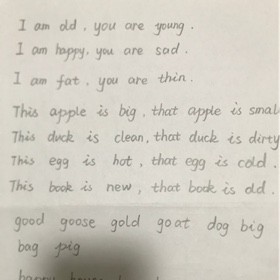 I am old, you are young.
I am happy, you are sad.
I am fat, you are thin.
This apple is big, that apple is small
This duck is clean, that duck is dirty
This egg is hot, that egg is cold.
This book is new, that book is old.
good goose gold goat dog big
bag pig
happy